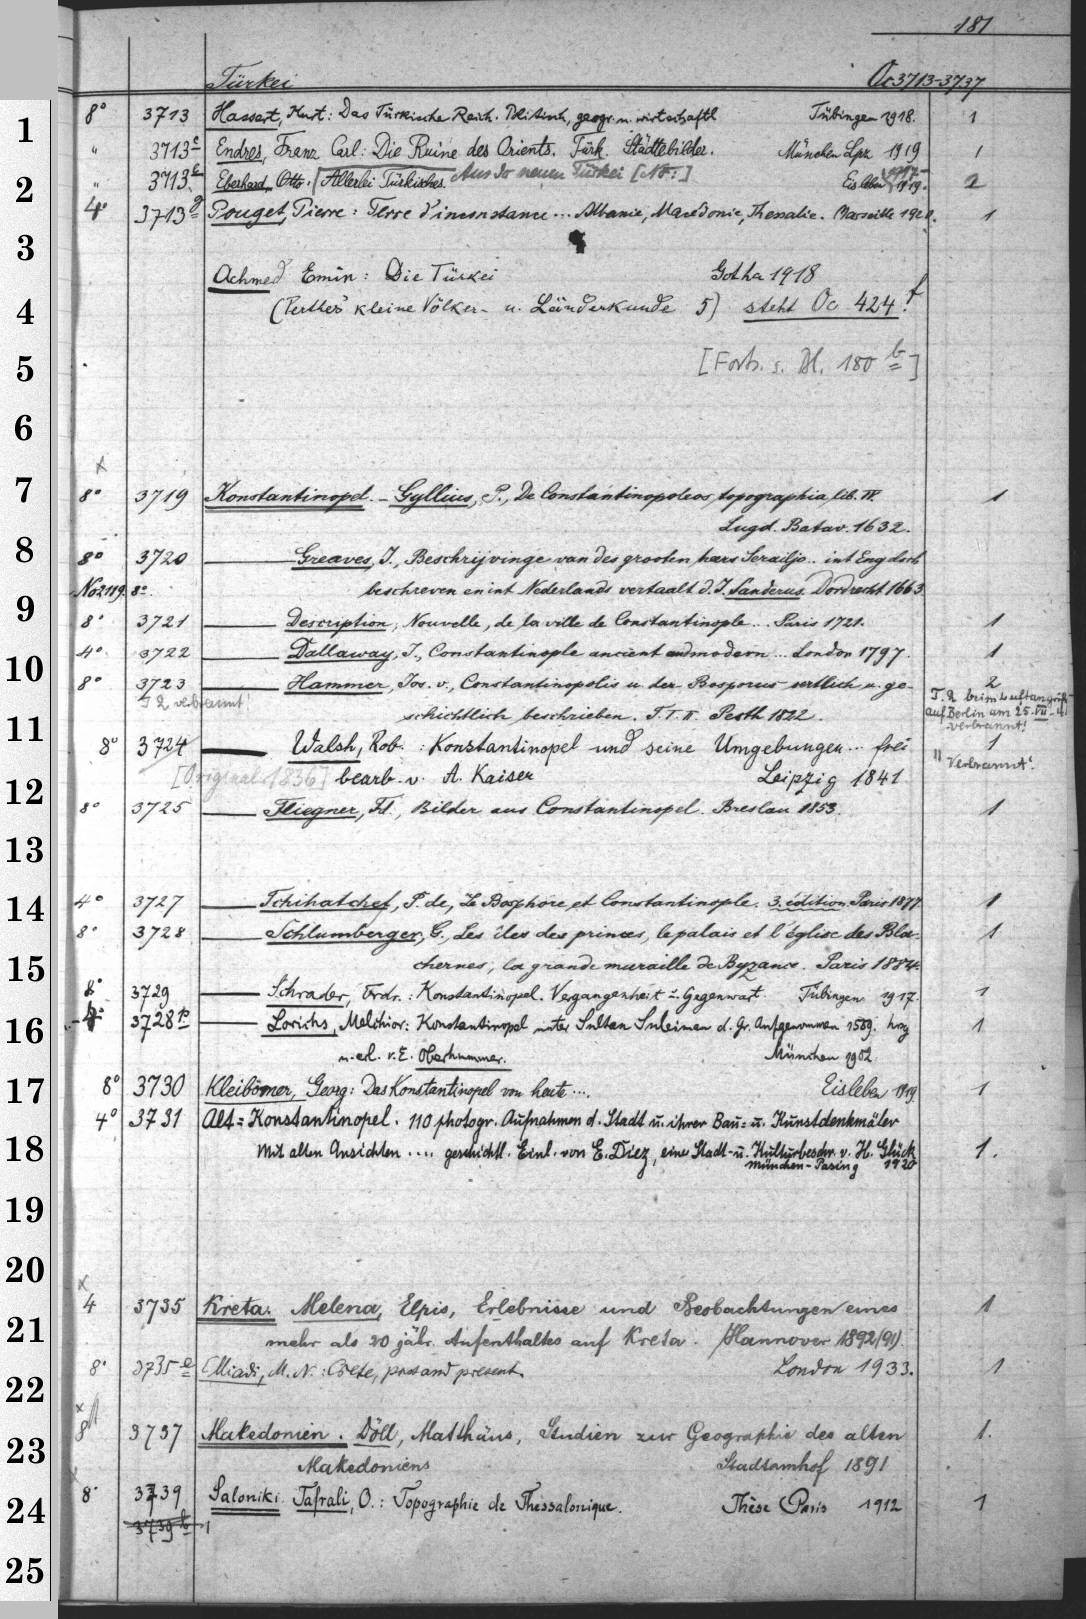 181
Türkei Oc 3713-3737
1
8° 3713 Hassert, Kurt: Das Türkische Reich. Politisch, geogr. u. wirtschaftl Tübingen 1918. 1
" 3713 Endres, Franz Carl: Die Ruine des Orients. Türk. Städtebilder. München Lpz 1919 1
2
" 3713 b Eberhard, Otto. [Allerlei Türkisches. Aus der neuen Türkei [No:] Eisleben 1919. 2
4° 3713 g Pouget, Pierre: Terre d'inconstance... Albanie, Macédonie, Thessalie. Marseille 1920. 1
3
Achmed Emin: Die Türkei Gotha 1918
4
(Perthes' kleine Völker- u. Länderkunde 5) steht Oc 424 f!
5
[Forts. s. Bl. 180 b]
6
7
8° 3719 Konstantinopel. - Gyllius, P., De Constantinopoleos topographia, lib. IV. 1
Lugd. Batav. 1632.
8
8° 3720 Greaves, J., Beschrijvinge van des grooten heers Serailjo.. int Engelsch
No 2119. 8° beschreven en int Nederlands vertaalt d. J. Sanderus. Dordrecht 1663
9
8° 3721 Description, Nouvelle, de la ville de Constantinople... Paris 1721. 1
10
4° 3722 Dallaway, J., Constantinople ancient and modern... London 1797. 1
8° 3723 Hammer, Jos. v., Constantinopolis u. der Bosporus örtlich u. ge- 2
T. 2 verbrannt! schichtlich beschrieben. T. I. II. Pesth 1822. T. 2 beim Luftangriff auf Berlin am 25. VII. verbrannt!
11
8° 3724 Walsh, Rob.: Konstantinopel und seine Umgebungen... frei 1
[Original 1836] bearb. v. A. Kaiser Leipzig 1841 " verbrannt!
12
8° 3725 Fliegner, Fd., Bilder aus Constantinopel. Breslau 1853. 1
13
14
4° 3727 Tchihatchef, P. de, Le Bosphore et Constantinople. 3. édition Paris 1877 1
8° 3728 Schlumberger, G., Les îles des princes, le palais et l'église des Bla- 1
15
chernes, la grande muraille de Byzance. Paris 1884.
8° 3729 Schrader, Frdr.: Konstantinopel. Vergangenheit u. Gegenwart Tübingen 1917. 1
16
4° 3728 Lorichs, Melchior: Konstantinopel unter Sultan Suleiman d. Gr. Aufgenommen 1559. hrsg 1
u. erl. v. E. Oberhummer. München 1902.
17
8° 3730 Kleibömer, Georg: Das Konstantinopel von heute.... Eisleben 1919. 1
4° 3731 Alt-Konstantinopel. 110 photogr. Aufnahmen d. Stadt u. ihrer Bau- u. Kunstdenkmäler
18
Mit alten Ansichten .... geschichtl. Einl. von E. Diez, eine Stadt- u. Kulturbeschr. v. H. Glück 1.
München-Pasing 1920
19
20
21
4 3735 Kreta. Melena, Elpis, Erlebnisse und Beobachtungen eines 1
mehr als 20 jähr. Aufenthaltes auf Kreta. Hannover 1892(91)
22
8° 3735 a Miadi, M. N.: Crete, past and present. London 1933. 1
23
8° 3737 Makedonien. Döll, Matthäus, Studien zur Geographie des alten 1.
Makedoniens Stadtamhof 1891
24
8° 3739 Saloniki. Tafrali, O.: Topographie de Thessalonique. Thèse Paris 1912 1
3739 b
25